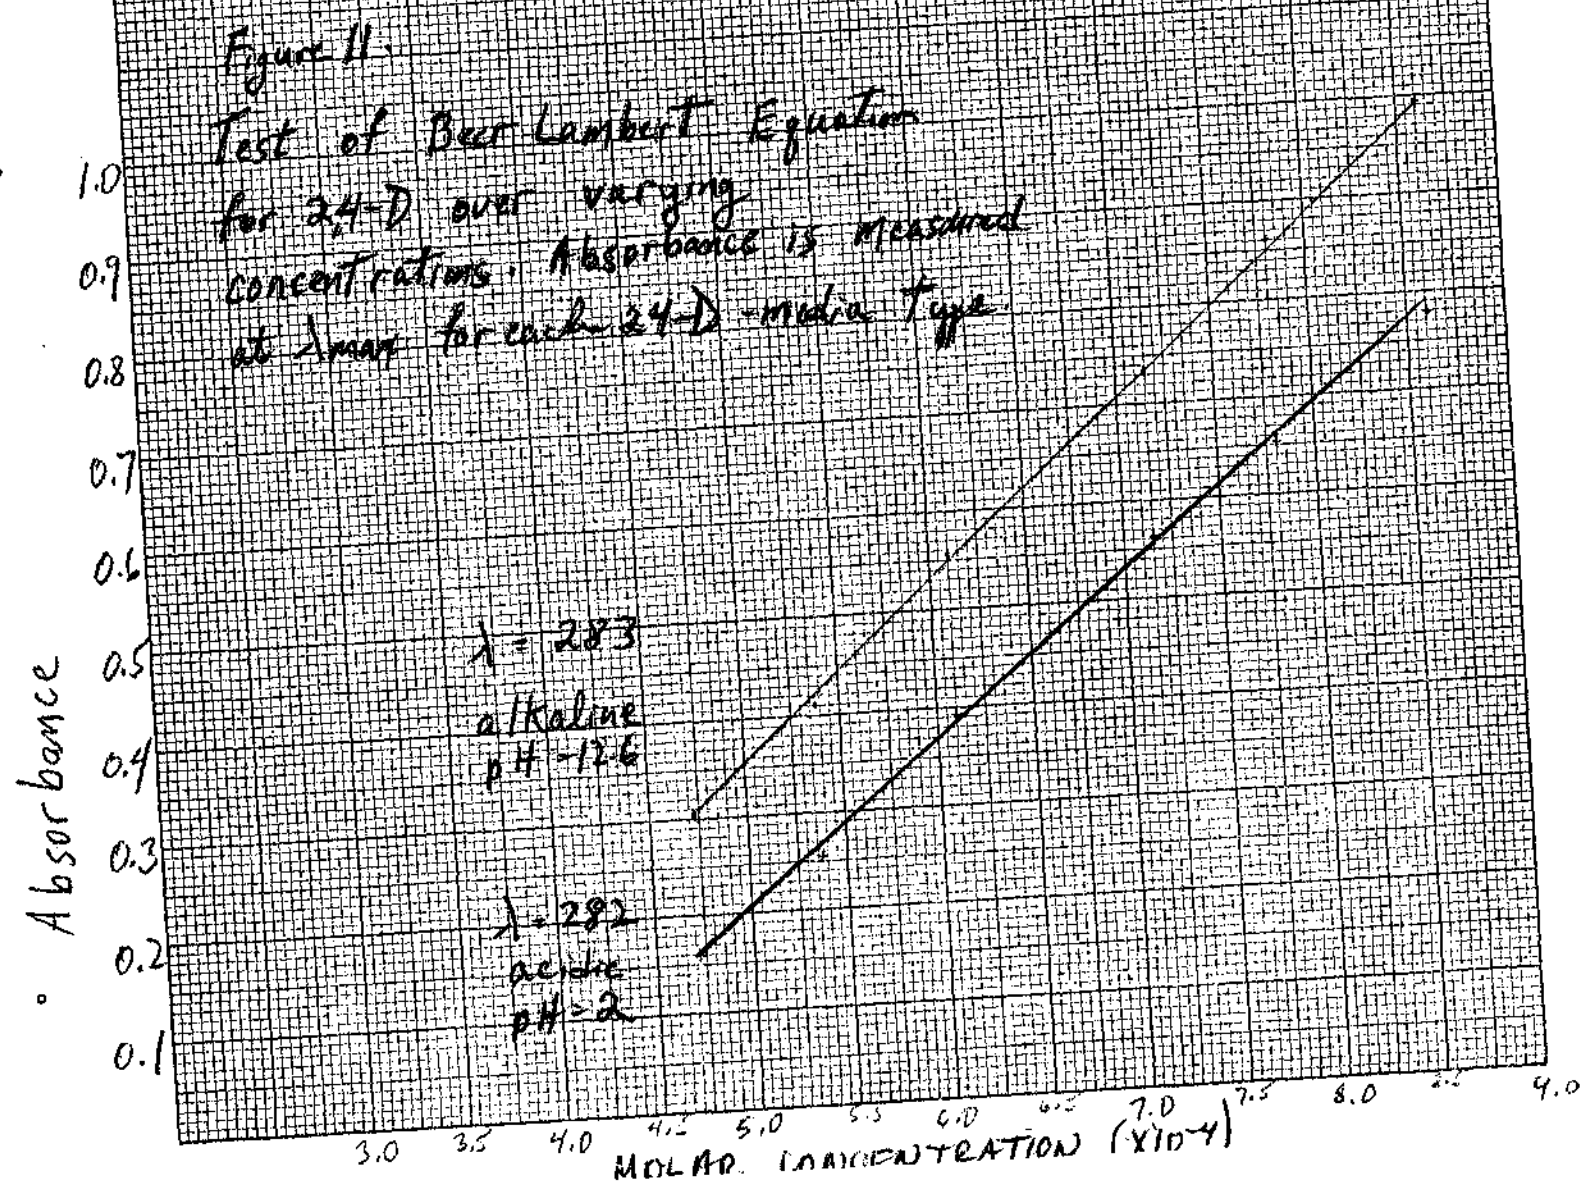 Figure 11.
Test of Beer Lambert Equation
for 2,4-D over varying
concentrations. Absorbance is measured
at λmax for each 2,4-D-media Type.
1.0
0.9
0.8
0.7
0.6
0.5
0.4
0.3
0.2
0.1
Absorbance
λ = 283
alkaline
pH -12.6
λ = 282
acidic
pH = 2
3.0 3.5 4.0 4.5 5.0 5.5 6.0 6.5 7.0 7.5 8.0 4.0
MOLAR CONCENTRATION (X10-4)